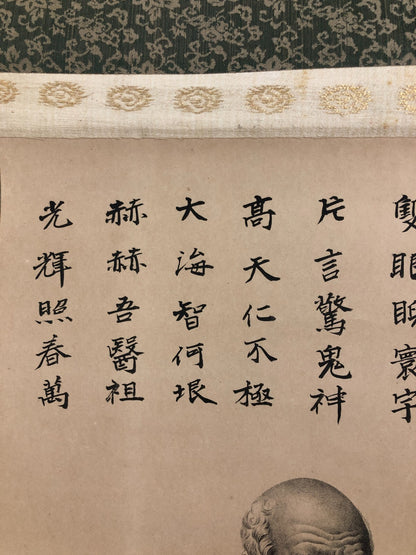 雙眼眇寰宇
片言驚鬼神
高天仁不極
大海智何垠
赫赫吾醫祖
光輝照春萬